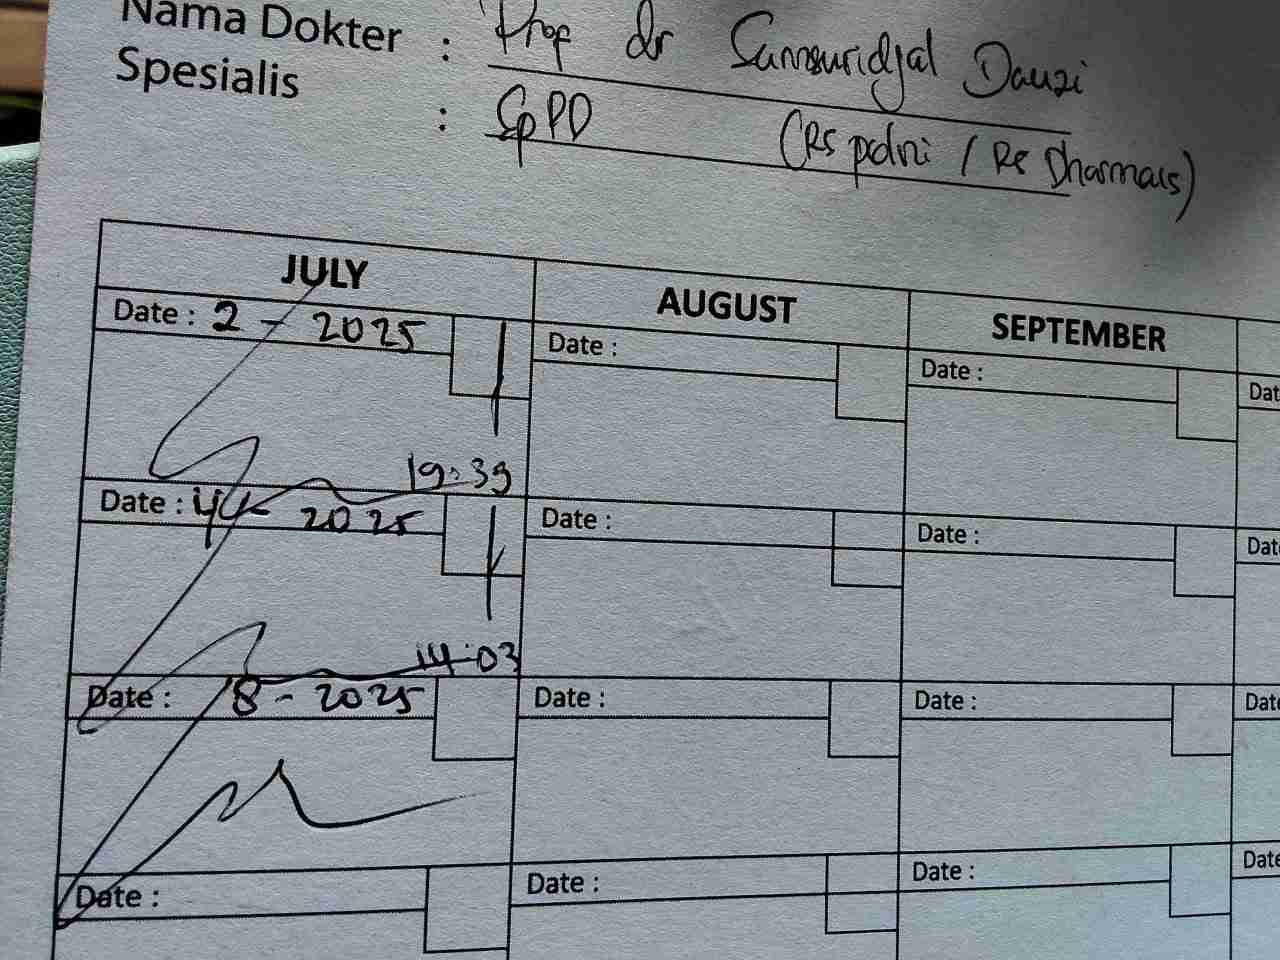 Nama Dokter : Prof dr Samsuridjal Dauzi
Spesialis : SpPD (RS polri / RS Dharmais)
JULY AUGUST SEPTEMBER
Date : 2 - 2025 Date : Date : Dat
19:39
Date : 2025 Date : Date : Dat
14:03
Date : 8 - 2025 Date : Date : Date
Date : Date : Date : Date